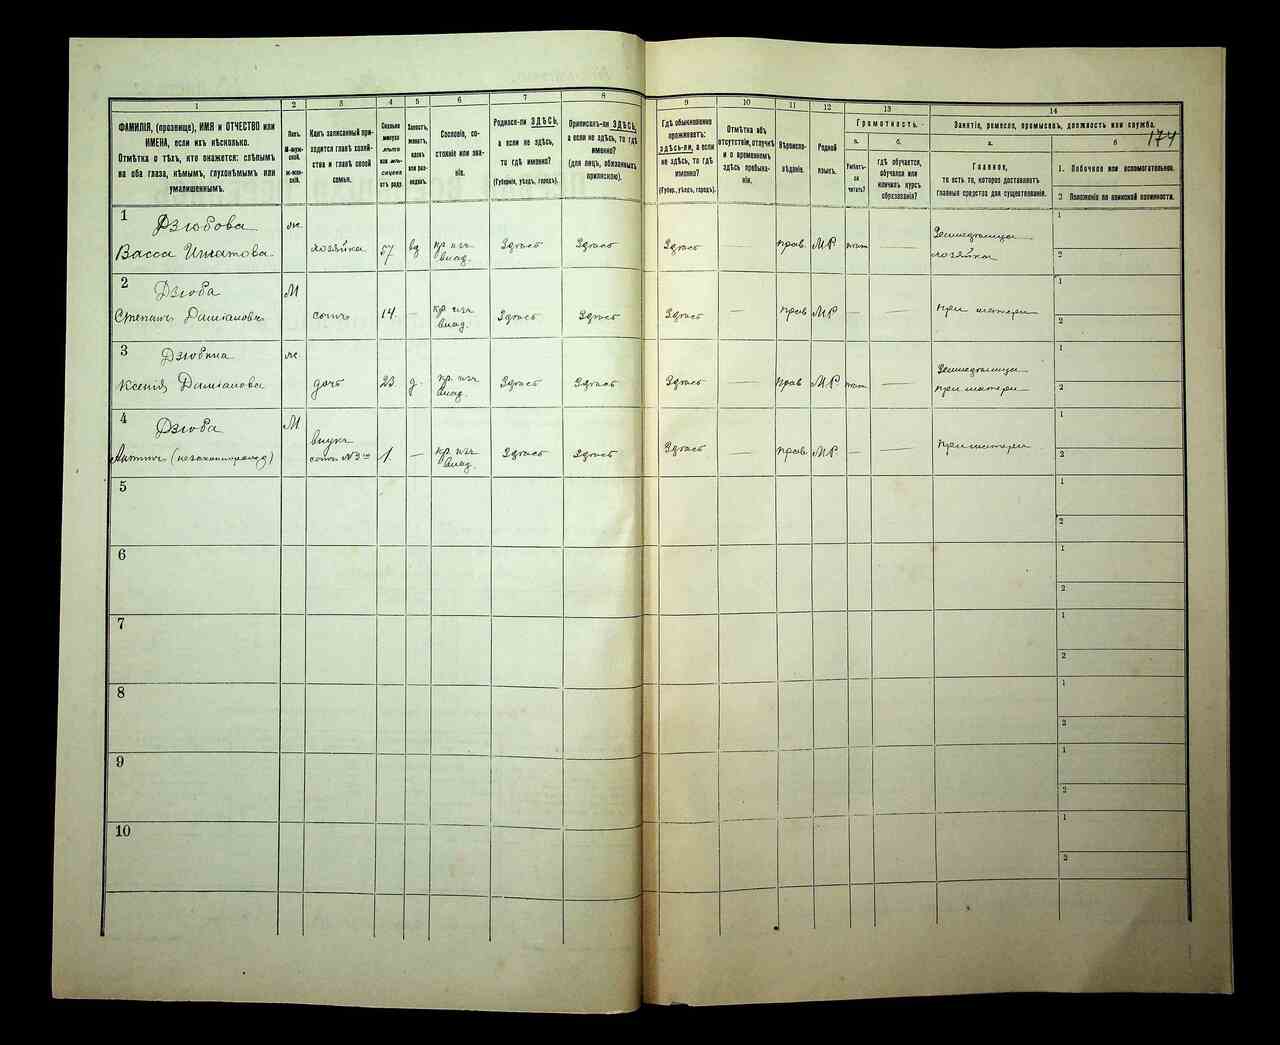 1
ФАМИЛІЯ, (прозвище), ИМЯ и ОТЧЕСТВО или
ИМЕНА, если ихъ нѣсколько.
Отмѣтка о тѣхъ, кто окажется: слѣпымъ
на оба глаза, нѣмымъ, глухонѣмымъ или
умалишеннымъ.
2
Полъ.
М-муж-
ской.
ж-жен-
скій.
3
Какъ записанный при-
ходится главѣ хозяй-
ства и главѣ своей
семьи.
4
Сколько
минуло
лѣтъ
или мѣ-
сяцевъ
отъ роду.
5
Холостъ,
женатъ,
вдовъ
или раз-
веденъ.
6
Сословіе, со-
стояніе или зва-
ніе.
7
Родился-ли ЗДѢСЬ,
а если не здѣсь,
то гдѣ именно?
(Губернія, уѣздъ, городъ).
8
Приписанъ-ли ЗДѢСЬ,
а если не здѣсь, то гдѣ
именно?
(для лицъ, обязанныхъ
припискою).
9
Гдѣ обыкновенно
проживаетъ:
здѣсь-ли, а если
не здѣсь, то гдѣ
именно?
(Губер., уѣздъ, городъ).
10
Отмѣтка объ
отсутствіи, отлучкѣ
и о временномъ
здѣсь пребыва-
ніи.
11
Вѣроиспо-
вѣданіе.
12
Родной
языкъ.
13
Грамотность.
а.
Умѣетъ-
ли
читать?
б.
гдѣ обучается,
обучался или
кончилъ курсъ
образованія?
14
Занятіе, ремесло, промыселъ, должность или служба.
174
а.
Главное,
то есть то, которое доставляетъ
главныя средства для существованія.
б
1. Побочное или вспомогательное.
2 Положеніе по воинской повинности.
1
Дзюбова
Васса Игнатова
ж
хозяйка
57
вд
кр изъ
влад.
Здѣсь
Здѣсь
Здѣсь
—
прав
МР
нѣт
—
Земледѣлица
хозяйка
1
2
2
Дзюба
Степанъ Даміановъ
М
сынъ
14.
—
кр. изъ
влад.
Здѣсь
Здѣсь
Здѣсь
—
прав
МР
—
—
при матери
1
2
3
Дзюбина
Ксенія Даміанова
ж
дочь
23.
д.
кр. изъ
влад.
Здѣсь
Здѣсь
Здѣсь
—
прав
МР
нѣт
—
Земледѣлица
при матери
1
2
4
Дзюба
(незаконнорожд)
М
внукъ
сынъ №3го
1.
—
кр. изъ
влад.
Здѣсь
Здѣсь
Здѣсь
—
прав
МР
—
—
при матери
1
2
5
1
2
6
1
2
7
1
2
8
1
2
9
1
2
10
1
2